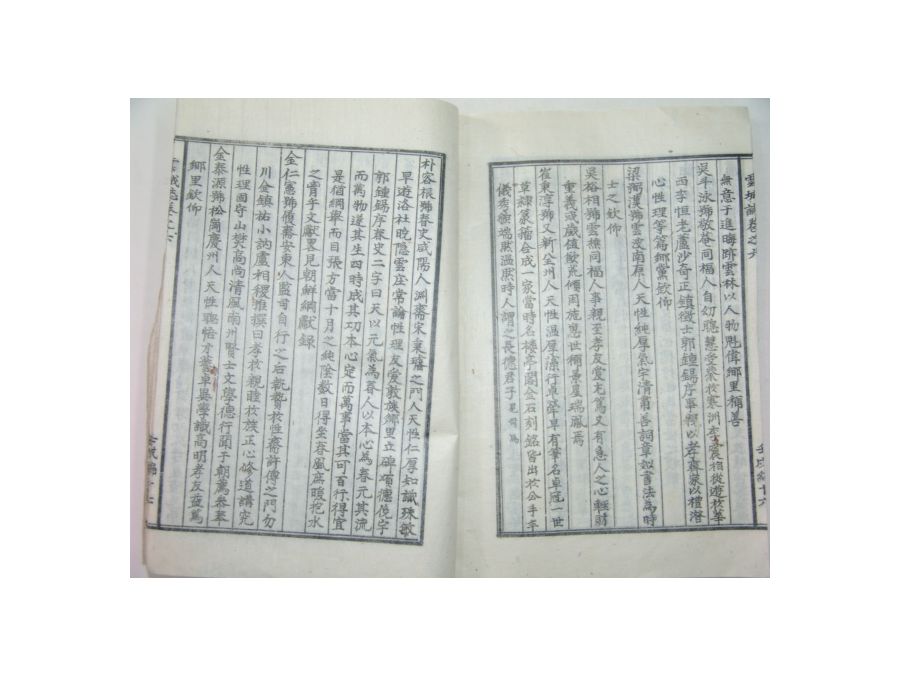 雲城誌卷之六
無意于進晦跡雲林以人物魁偉鄉里稱善
吳半泳號敬菴同福人自幼聰慧受業於寒洲李震相從遊於華
西李恒老蘆沙奇正鎮徵士郭鍾錫序畢鄉以孝齋蒙以禮
心性理等篇鄉黨欽仰
梁弼漢號雲波南原人天性純厚氣宇清肅善詞章妙書法為時
士之欽仰
吳裕相號雲樵同福人事親至孝友愛尤篤又有急人之心輕財
重義或歲值歉荒傾囷施恩世稱景星瑞鳳焉
崔東淳號又新全州人天性溫厚深行卓犖早有筆名卓冠一世
草隸篆籀合成一家當時名樓亭閣金石刻銘皆出於公手年
儀秀端默溫然時人謂之長德君子
朴容根號春史咸陽人淵齋宋秉璿之門人天性仁厚知識殊敏
早遊洛社晚隱雲庄常論性理友愛敦族鄉里立碑頌德俛宇
郭鍾錫序春史二字曰天以元氣為春人以本心為春元其流
而萬物遂其生四時成其功本心定而萬事當其可百行得宜
是猶綱舉而目張方當十月之純陰數日得坐春風座暖抱水
之育乎文獻畧見朝鮮綱獻錄
金仁 號 齋安東人監司自行之后執贄於性齋許傳之門勿
川金鎮祐小訥盧相稷撰曰孝於親睦於族正心修道講究
性理固守山樊高尚清風南州賢士文學德行顯于朝薦叅奉
金泰源號松岡慶州人天性聰悟才藝卓異學識高明孝友益篤
鄉里欽仰